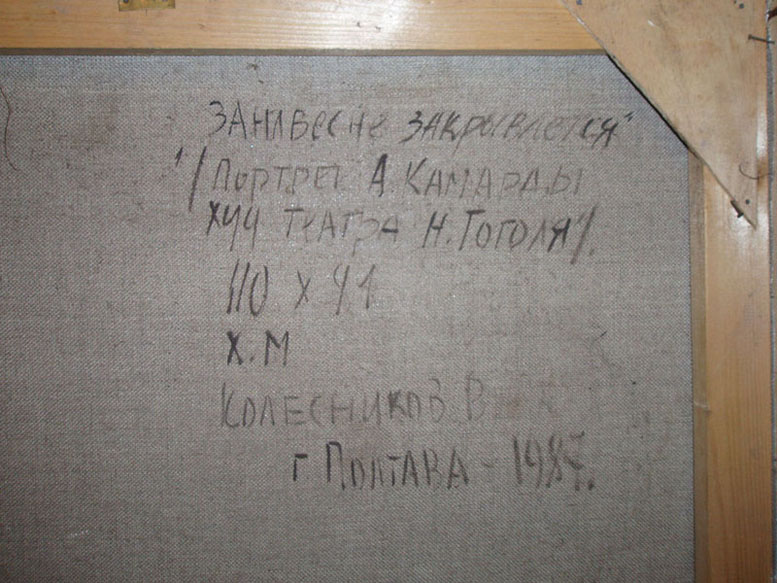 ЗАНАВЕС НЕ ЗАКРЫВАЕТСЯ"
"/ПОРТРЕТ А. КАМАРДЫ
ХУД ТЕАТРА Н. ГОГОЛЯ/.
110 Х 91
Х.М
КОЛЕСНИКОВ. В
Г ПОЛТАВА - 1987.